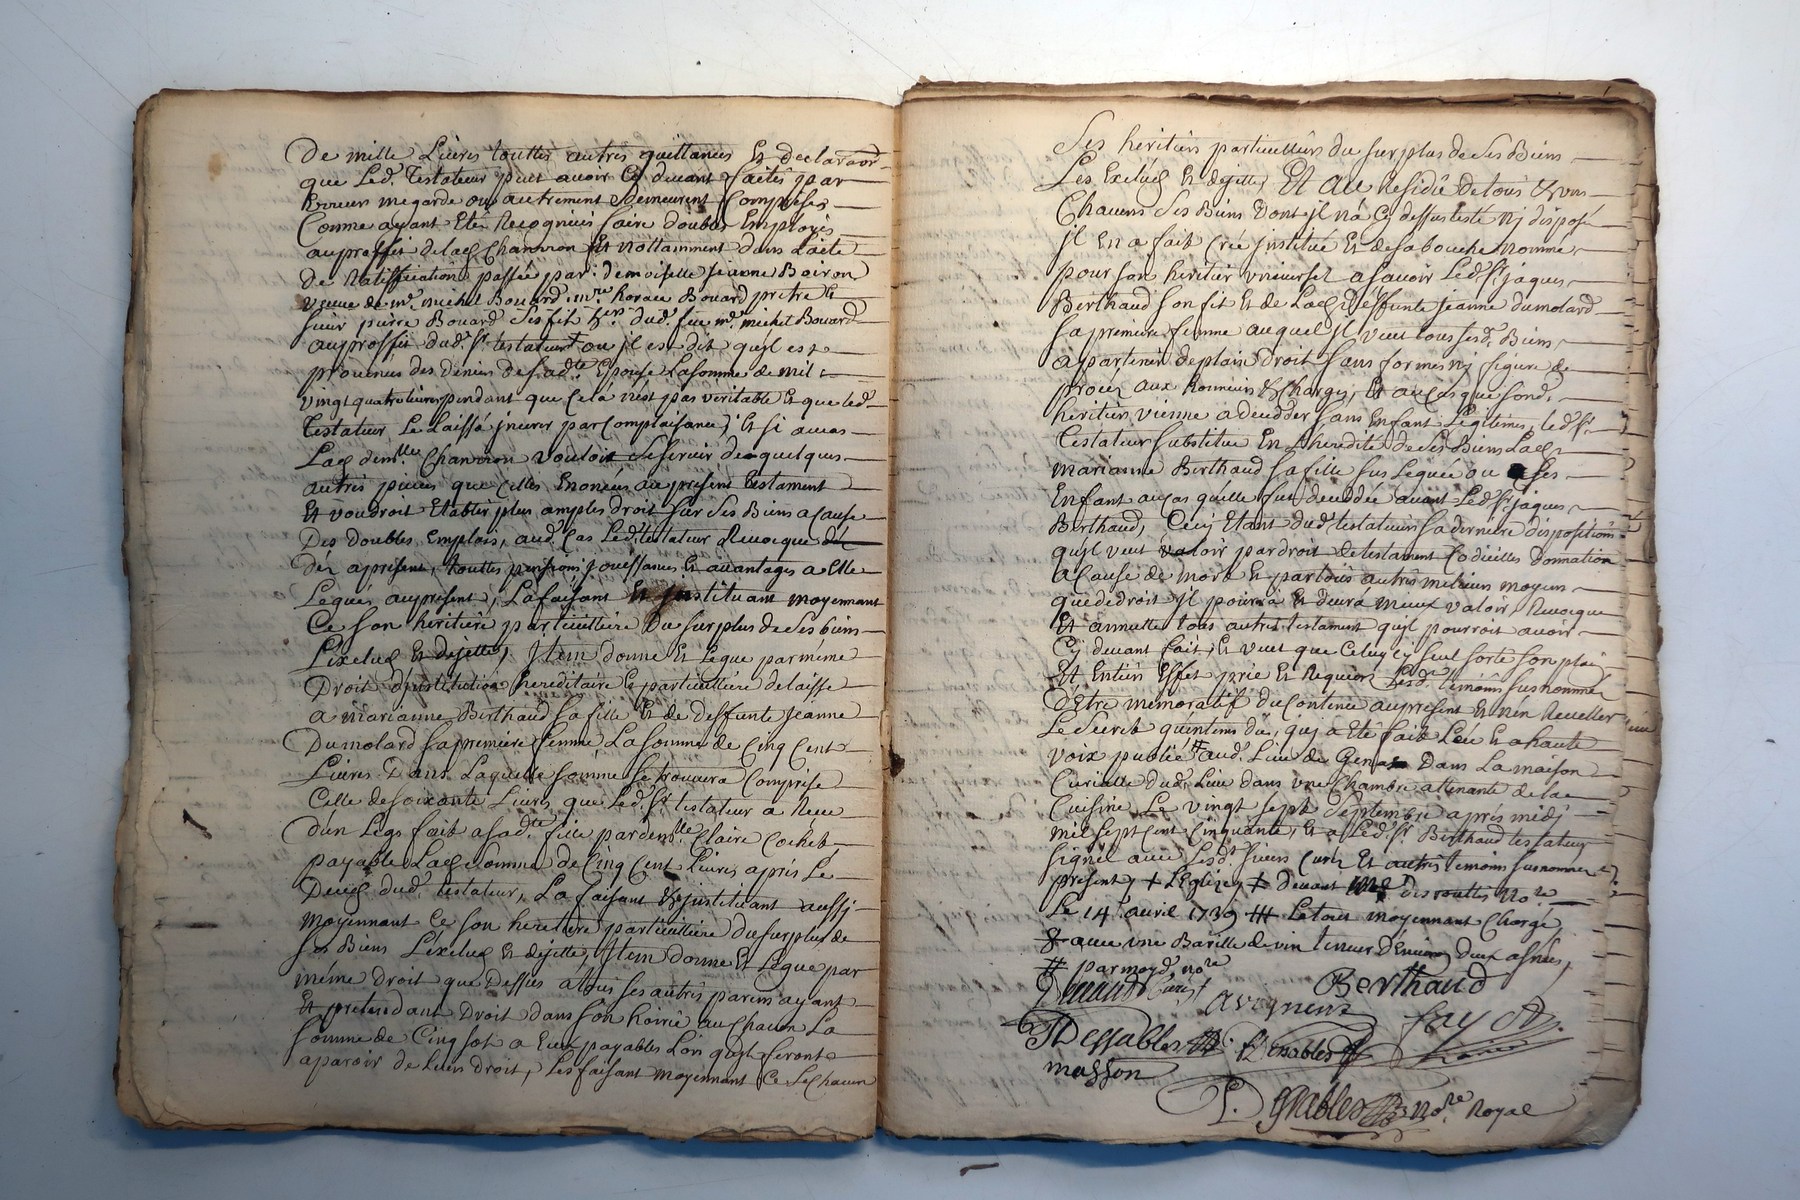 De mille Livres touttes autres quittances Et declaraõn
que Led. Testateur peut avoir Cy devant faites par
Erreur megarde ou autrement Demeurent Comprises
Comme ayant Eté Recognües faire doubles Employés
au proffit de lad. Chanvron Et nottamment dans L'acte
De Ratiffication passée par demoiselle Jeanne Boiron
veuve de mr. michel Bouard mre. horace Bouard prêtre &
sieur pierre Bouard Ses fils hers. dud. feu mr. michel Bouard
au proffit dud. Sr. testateur ou jl est dit qu'jl est
provenus des deniers de sad.te Epouse La somme de mil
vingt quatre livres pendant que Cela n'est pas veritable Et que led.
Testateur Le Laissá jnserer par Complaisance; Et si au cas
Lad. demlle. Chanvron vouloit Se servir de quelques
autres pieces que Celles Enoncées au present testament
Et voudroit Etablir plus amples droit sur Ses Biens a Cause
Des doubles Emplois, aud. Cas Led. testateur Revocque
Dez a present, touttes pensions jouissances & avantages a Elle
Legués au present, La faisant Et jnstituant moyennant
Ce Son heritiére particulliere Du surplus de Ses biens
L'exclud Et dejette, Jtem donne Et Legue par méme
Droit d'jnstitution hereditaire & particulliére delaisse
a marianne Berthaud sa fille Et de deffunte Jeanne
Dumolard sa premiére femme La somme de Cinq Cent
Livres Dans Laquelle somme se trouvera Comprise
Celle de soixante Livres que Led. Sr. testateur a Reçu
d'un Legs fait a sad.te fille par demlle. Claire Cochet,
payable Lad. somme de Cinq Cent Livres aprés Le
Decés dud. testateur, La faisant & jnstituant aussy
moyennant Ce son heritiére particulliére du surplus de
ses Biens L'exclud Et dejette, Jtem donne Et Legue par
méme Droit que Dessus a tous ses autres parens ayant
Et pretendant Droit dans son hoirie au Chacun La
somme de Cinq sols a Eux payables Lors qu'jl feront
a paroir de Leurs droit, Les faisant moyennant Ce Le Chacun
Ses heritiers particulliers du surplus de Ses Biens
Les Exclud Et dejette, Et Au Residu De tous & uns
Chacuns Ses Biens dont jl n'a Cy dessus testé Nj disposé
jl En a fait Crée jnstitué Et de sa bouche Nommé
pour son heritier vniversel a savoir Led. Sr. jaques
Berthaud son fils Et de Lad. Deffunte jeanne dumolard
sa premiere femme auquel jl veut tous sesd. Biens
appartenir de plain droit sans formes Nj figure de
procez aux honneurs & Charges, Et au Cas que sond.
heritier vienne a decedder sans Enfant Legitimes, led. Sr.
Testateur substitue En L'heredité de Ses Biens Lad.
marianne Berthaud sa fille sus Leguée ou a ses
Enfant au Cas qu'elle fut deceddée avant Led. Sr. jaques
Berthaud, Cecy Etant dud. testateur sa derniére disposition
qu'jl veut valoir par droit de testament Codicilles Donnation
a Cause de mort Et par tous autres milieurs moyens
que de droit jl pourra Et devra mieux valoir, Revocque
Et annulle tous autres testament qu'jl pourroit avoir
Cy devant fait, Et veut que Celuy cy seul sorte son plain
Et Entier Effet prie Et Requier Lesd. temoins susnommés
D'être memoratif du Contenu au present Et n'en Reveller
Le Secret qu'en tems dû, quj a Eté fait Leu Et a haute
voix publié # aud. Lieu de Genas Dans La maison
Curialle dud. Lieu dans vne Chambre attenante de la
Cuisine Le vingt sept septembre aprés midj
mil sept Cent Cinquante, Et a Led. Sr. Berthaud testateur
signé avec Lesd. sieurs Curés Et autres temoins susnommés
presents + L'Eglize, ‡ devant Me. Desrouttes nore.
Le 14e. avril 1739 ### La tour moyennant Charge,
& avec vne Barille de vin teneur D'Environ deux asnées,
# par moyd. nore.
Curé Berthaud
avognens fayot
Dessables Desables
masson
L. Desables nore. Royal